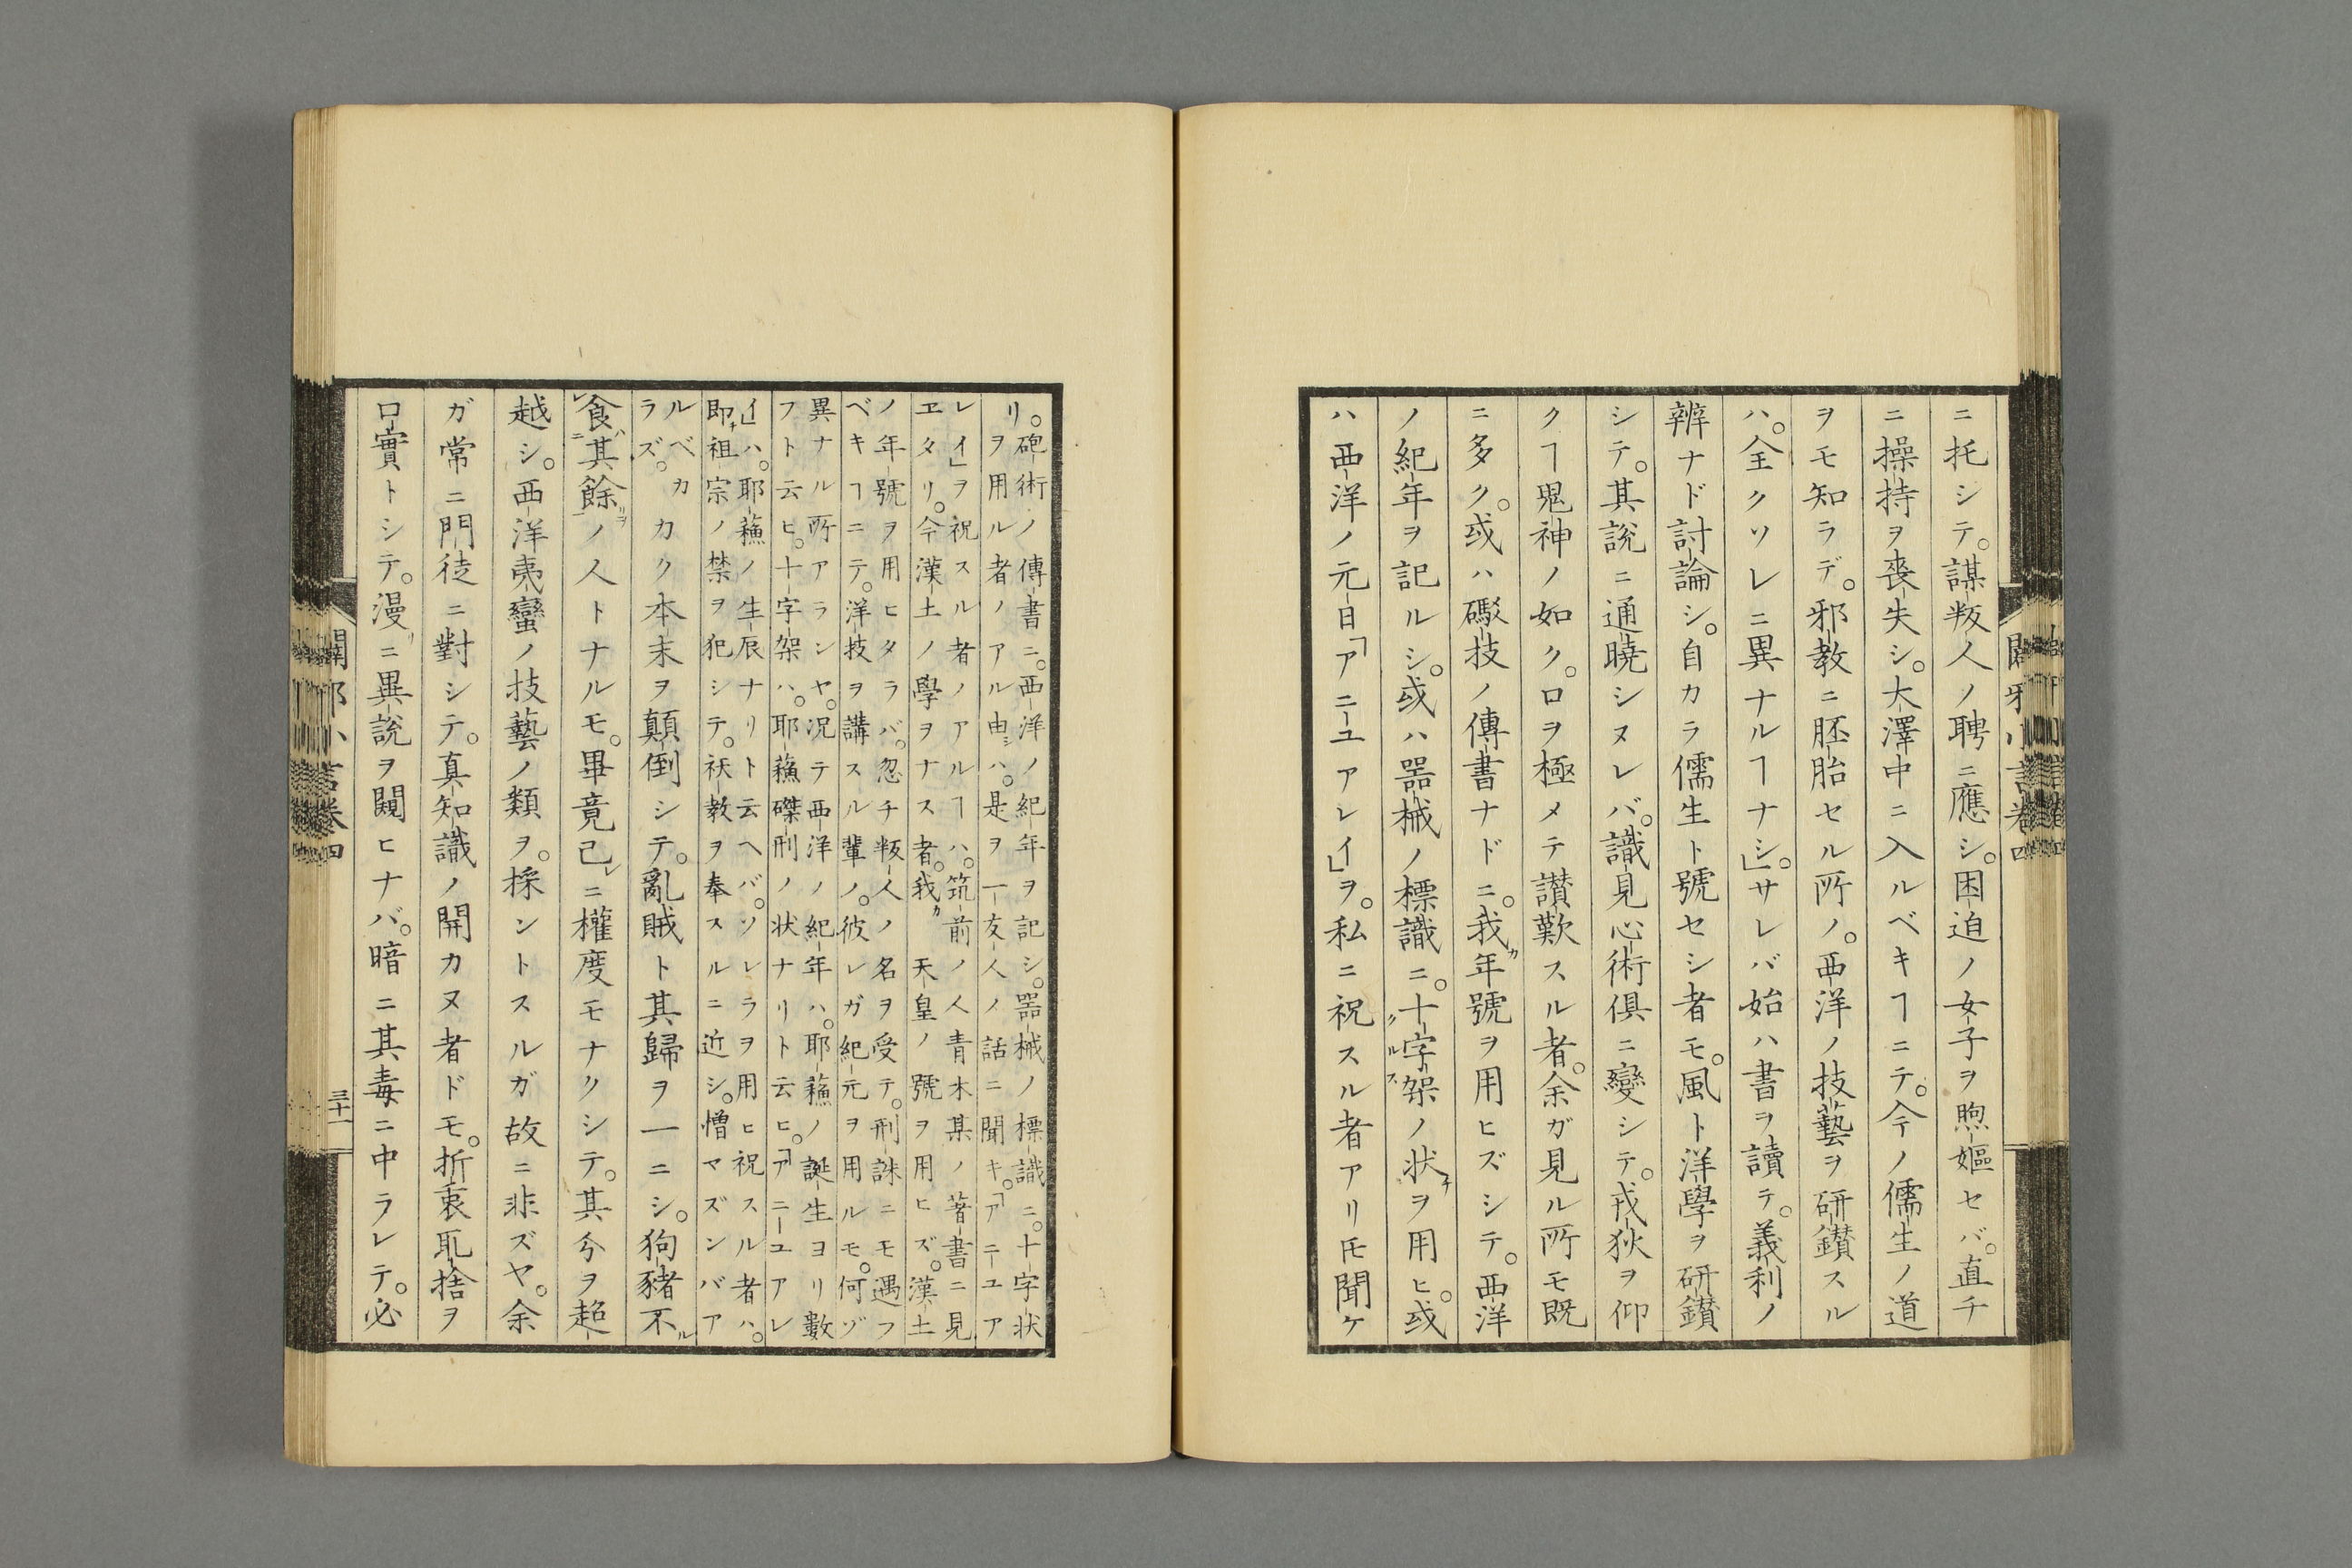 ニ托シテ。謀叛人ノ聘ニ應シ。困迫ノ女子ヲ煦嫗セバ。直チ
ニ操持ヲ喪失シ。大澤中ニ入ルベキヿニテ。今ノ儒生ノ道
ヲモ知ラデ。邪教ニ胚胎セル所ノ。西洋ノ技藝ヲ研鑚スル
ハ。全クソレニ異ナルヿナシ。」サレバ始ハ書ヲ讀テ。義利ノ
辨ナド討論シ。自カラ儒生ト號セシ者モ。風ト洋學ヲ研鑚
シテ。其説ニ通曉シヌレバ。識見心術倶ニ變シテ。戎狄ヲ仰
クヿ鬼神ノ如ク。口ヲ極メテ讃歎スル者。余ガ見ル所モ既
ニ多ク。或ハ礟技ノ傳書ナドニ。我カ年號ヲ用ヒズシテ。西洋
ノ紀年ヲ記ルシ。或ハ器械ノ標識ニ。十字架クルスノ状チヲ用ヒ。或
ハ西洋ノ元日「アニユアレイ」ヲ。私ニ祝スル者アリ𪜈聞ケ
リ。砲術ノ傳書ニ。西洋ノ紀年ヲ記シ。器械ノ標識ニ。十字状
ヲ用ル者ノアル由シハ。是ヲ一友人ノ話ニ聞キ。「アニユア
レイ」ヲ祝スル者ノアルヿハ。筑前ノ人青木某ノ著書ニ見
ヱタリ。今漢土ノ學ヲナス者。我カ 天皇ノ號ヲ用ヒズ。漢土
ノ年號ヲ用ヒタラバ。忽チ叛人ノ名ヲ受テ。刑誅ニモ遇フ
ベキヿニテ。洋技ヲ講スル輩ノ。彼レガ紀元ヲ用ルモ。何ゾ
異ナル所アランヤ。況テ西洋ノ紀年ハ。耶蘓ノ誕生ヨリ數
フト云ヒ。十字架ハ。耶蘓磔刑ノ状ナリト云ヒ。「アニユアレ
イ」ハ。耶蘓ノ生辰ナリト云ヘバ。ソレラヲ用ヒ祝スル者ハ。
即チ祖宗ノ禁ヲ犯シテ。祅教ヲ奉スルニ近シ。憎マズンバア
ルベカ
ラズ。
カク本末ヲ顛倒シテ。亂賊ト其歸ヲ一ニシ。狗豬不ル
レ食ハ二其餘一リヲノ人トナルモ。畢竟己レニ權度モナクシテ。其分ヲ超
越シ。西洋夷蠻ノ技藝ノ類ヲ。採ントスルガ故ニ非ズヤ。余
ガ常ニ門徒ニ對シテ。真知識ノ開カヌ者ドモ。折衷取捨ヲ
口實トシテ。漫リニ異説ヲ閲ヒナバ。暗ニ其毒ニ中ラレテ。必
闢邪小言卷四
三十一